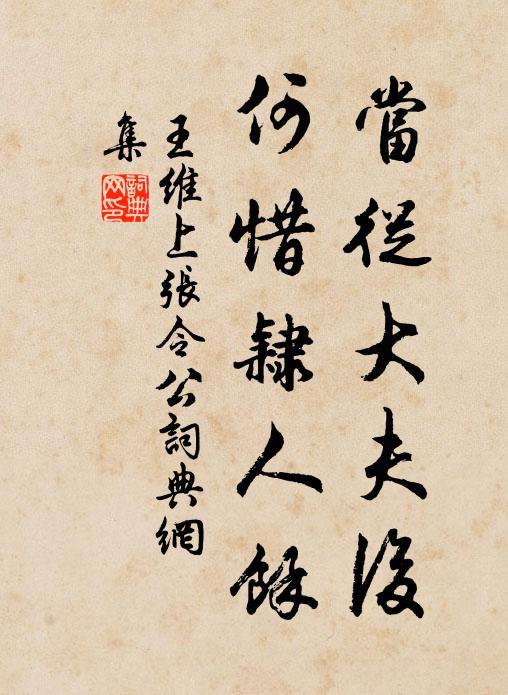 當從大夫後
何惜隸人餘
王維上張令公詞典網
集
詞典
网印